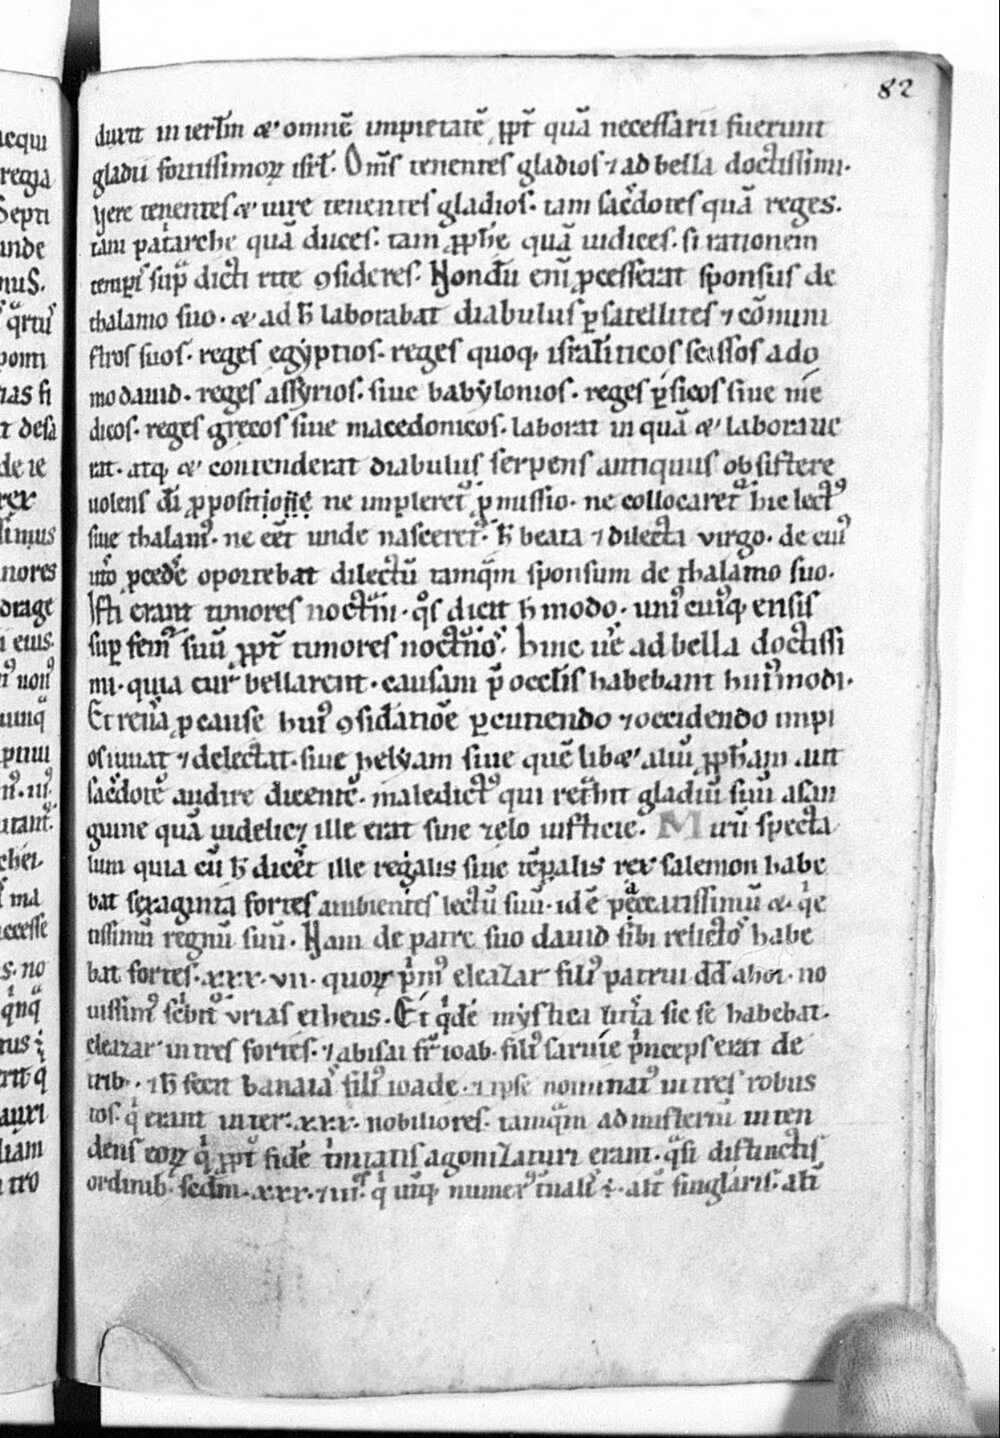 82
durit in ierl̄m & omnē impietatē ꝓpt̄ quā necessarii fuerunt
gladii fortissimoꝝ isrl̄. Om̄s tenentes gladios ⁊ ad bella doctissimi.
Vere tenentes & uire tenentes gladios. tam sac̄dotes quā reges.
tam pat̓arche quā duces. tam ꝓph̄e quā iudices. si rationem
temp̄is sup̄dicti rite ꝯsideres. Nondū eni ꝓcesserat sponsus de
thalamo suo. & ad h̄ laborabat diabulus ꝑ satellites ⁊ cōmini
stros suos. reges egyptios. reges quoq, isral̓iticos scissos a do
mo dauid. reges assyrios. siue babylonios. reges ꝑsicos siue me
dicos. reges grecos siue macedonicos. laborat in quā & laboraue
rat. atq, & contenderat diabulus serpens antiquus obsistere
uolens dī ꝓpositioni ne impleret᷑ ꝓmissio. ne collocaret᷑ hic lect᷒
siue thalam᷒. ne eēt unde nasceret᷑. h̄ beata ⁊ dilecta virgo. de cui᷒
ut̓o ꝓcede᷑ oportebat dilectū tamq̄m sponsum de thalamo suo.
Isti erant timores noct̓ni. q̊s dicit h̄ modo. uni᷒cuiq, ensis
sup fem᷒ suū ꝓpt̄ timores noct̓nos. Hinc ūe ad bella doctissi
mi. quia cur bellarent. causam p̄ oculis habebant hui᷒modi.
Et reu̓a ꝓ cause hui᷒ ꝯsid̓atiōe ꝑcutiendo ⁊ occidendo impi
os iuuat ⁊ delectat. siue helyam siue quē lib& aliū ꝓph̄am aut
sac̓dotē audire dicentē. maledict᷒ qui ret̓hit gladiū suū a san
guine quā uidelic& ille erat sine zelo iusticie. Mirū specta
lum quia cū h̄ dicēt ille regalis siue tēꝑalis rex salemon habe
bat sexaginta fortes ambientes lectū suū. id ē pacatissimū & q̓e
tissimū regnū suū. Nam de patre suo dauid sibi relictos habe
bat fortes. xxx. vii. quoꝝ p̓m᷒ eleazar fili᷒ patrui dd̄ ahoi. no
uissim᷒ sc̓bit᷑ vrias etheus. Et q̓dē mystica iura sic se habebat.
eleazar in tres fortes. ⁊ abisai fr̄ ioab. fili᷒ saruie p̓nceps erat de
trib.. ⁊ h̄ fecit banaias fili᷒ ioade. ⁊ ipse nominat᷒ in tres robus
tos. q̓ erant inter. xxx. nobiliores. tamq̄m ad misteriū in ten
dens eoꝝ q̓ ꝓpt̄ fidē t̓nitatis agonizaturi erant. q̄si distinctis
ordinib. sēdm. xxx. ⁊ iii᷒. q̓ utiq, numer᷒ t̓nalis ÷. alt̄ singlaris. alt̄